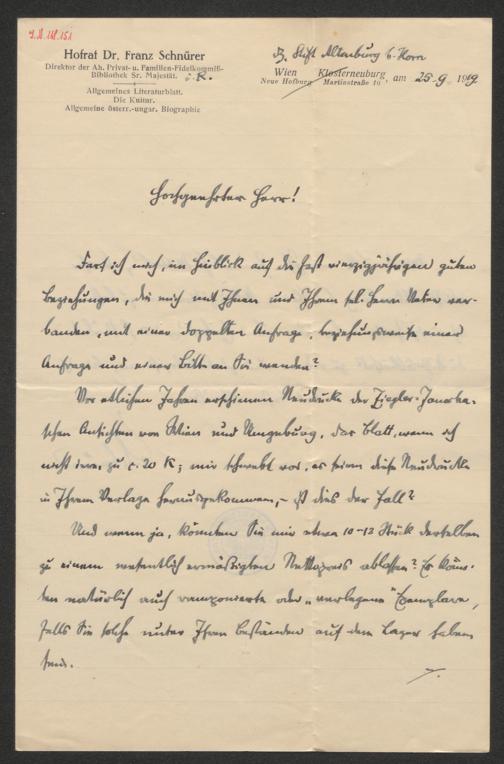 Hofrat Dr. Franz Schnürer
Direktor der Ah. Privat- u. Familien-Fideikommiß-
Bibliothek Sr. Majestät. i. R.
Allgemeines Literaturblatt.
Die Kultur.
Allgemeine österr.-ungar. Biographie
Stift Altenburg b. Horn
Wien Klosterneuburg, am 25. 9. 1919
Neue Hofburg Martinstraße 16
Hochgeehrter Herr!
Darf ich mich, im Hinblick auf die fast vierzigjährigen guten
Beziehungen, die mich mit Ihnen und Ihrem sel. Herrn Vater ver-
banden, mit einer doppelten Anfrage, beziehungsweise einer
Anfrage und einer Bitte an Sie wenden?
Vor etlichen Jahren erschienen Neudrucke der Ziegler-Janscha-
schen Ansichten von Wien und Umgebung, das Blatt, wenn ich
nicht irre, zu c. 20 K; mir schwebt vor, es seien diese Neudrucke
in Ihrem Verlage herausgekommen, – ist dies der Fall?
Und wenn ja, könnten Sie mir etwa 10-12 Stück derselben
zu einem wesentlich ermässigten Nettopreis ablassen? Es könn-
ten natürlich auch ramponierte oder „verlegene" Exemplare,
falls Sie solche unter Ihren Beständen auf dem Lager haben
sein.